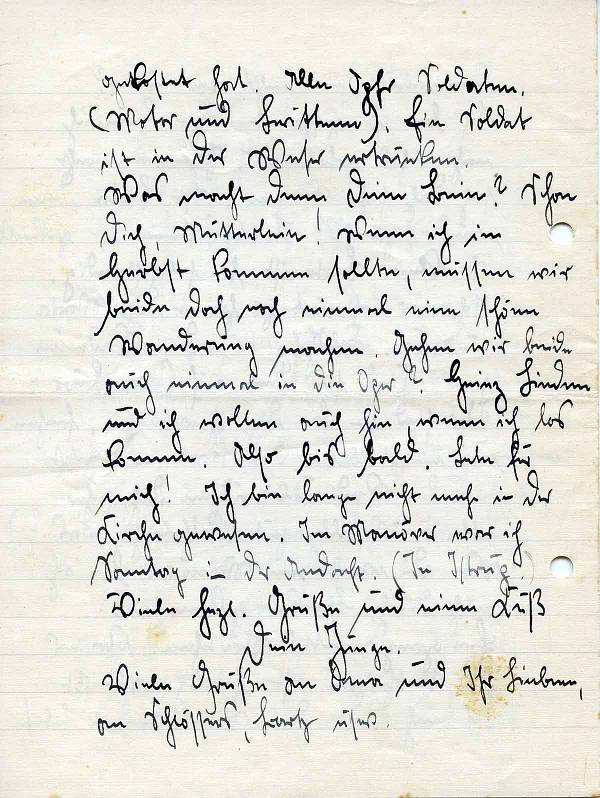 gekostet hat. Alle Opfer Soldaten.
(Motor und        ). Ein Soldat
ist in der Weser ertrunken.
Was macht denn Dein Bein? Schon
Dich, Mütterlein! Wenn ich im
Herbst kommen sollte, müssen wir
beide doch noch einmal eine schöne
Wanderung machen. Gehen wir beide
auch einmal in die Oper? Heinz Linden
und ich wollen auch hin, wenn ich los
komme. Also bis bald. Bete für
mich! Ich bin lange nicht mehr in der
Kirche gewesen. Im Manöver war ich
Sonntag in der Andacht. (In Istrup.)
Viele herzl. Grüße und einen Kuß
Dein Junge.
Viele Grüße an Oma und Ihr Lieben,
an Schlössers, usw.